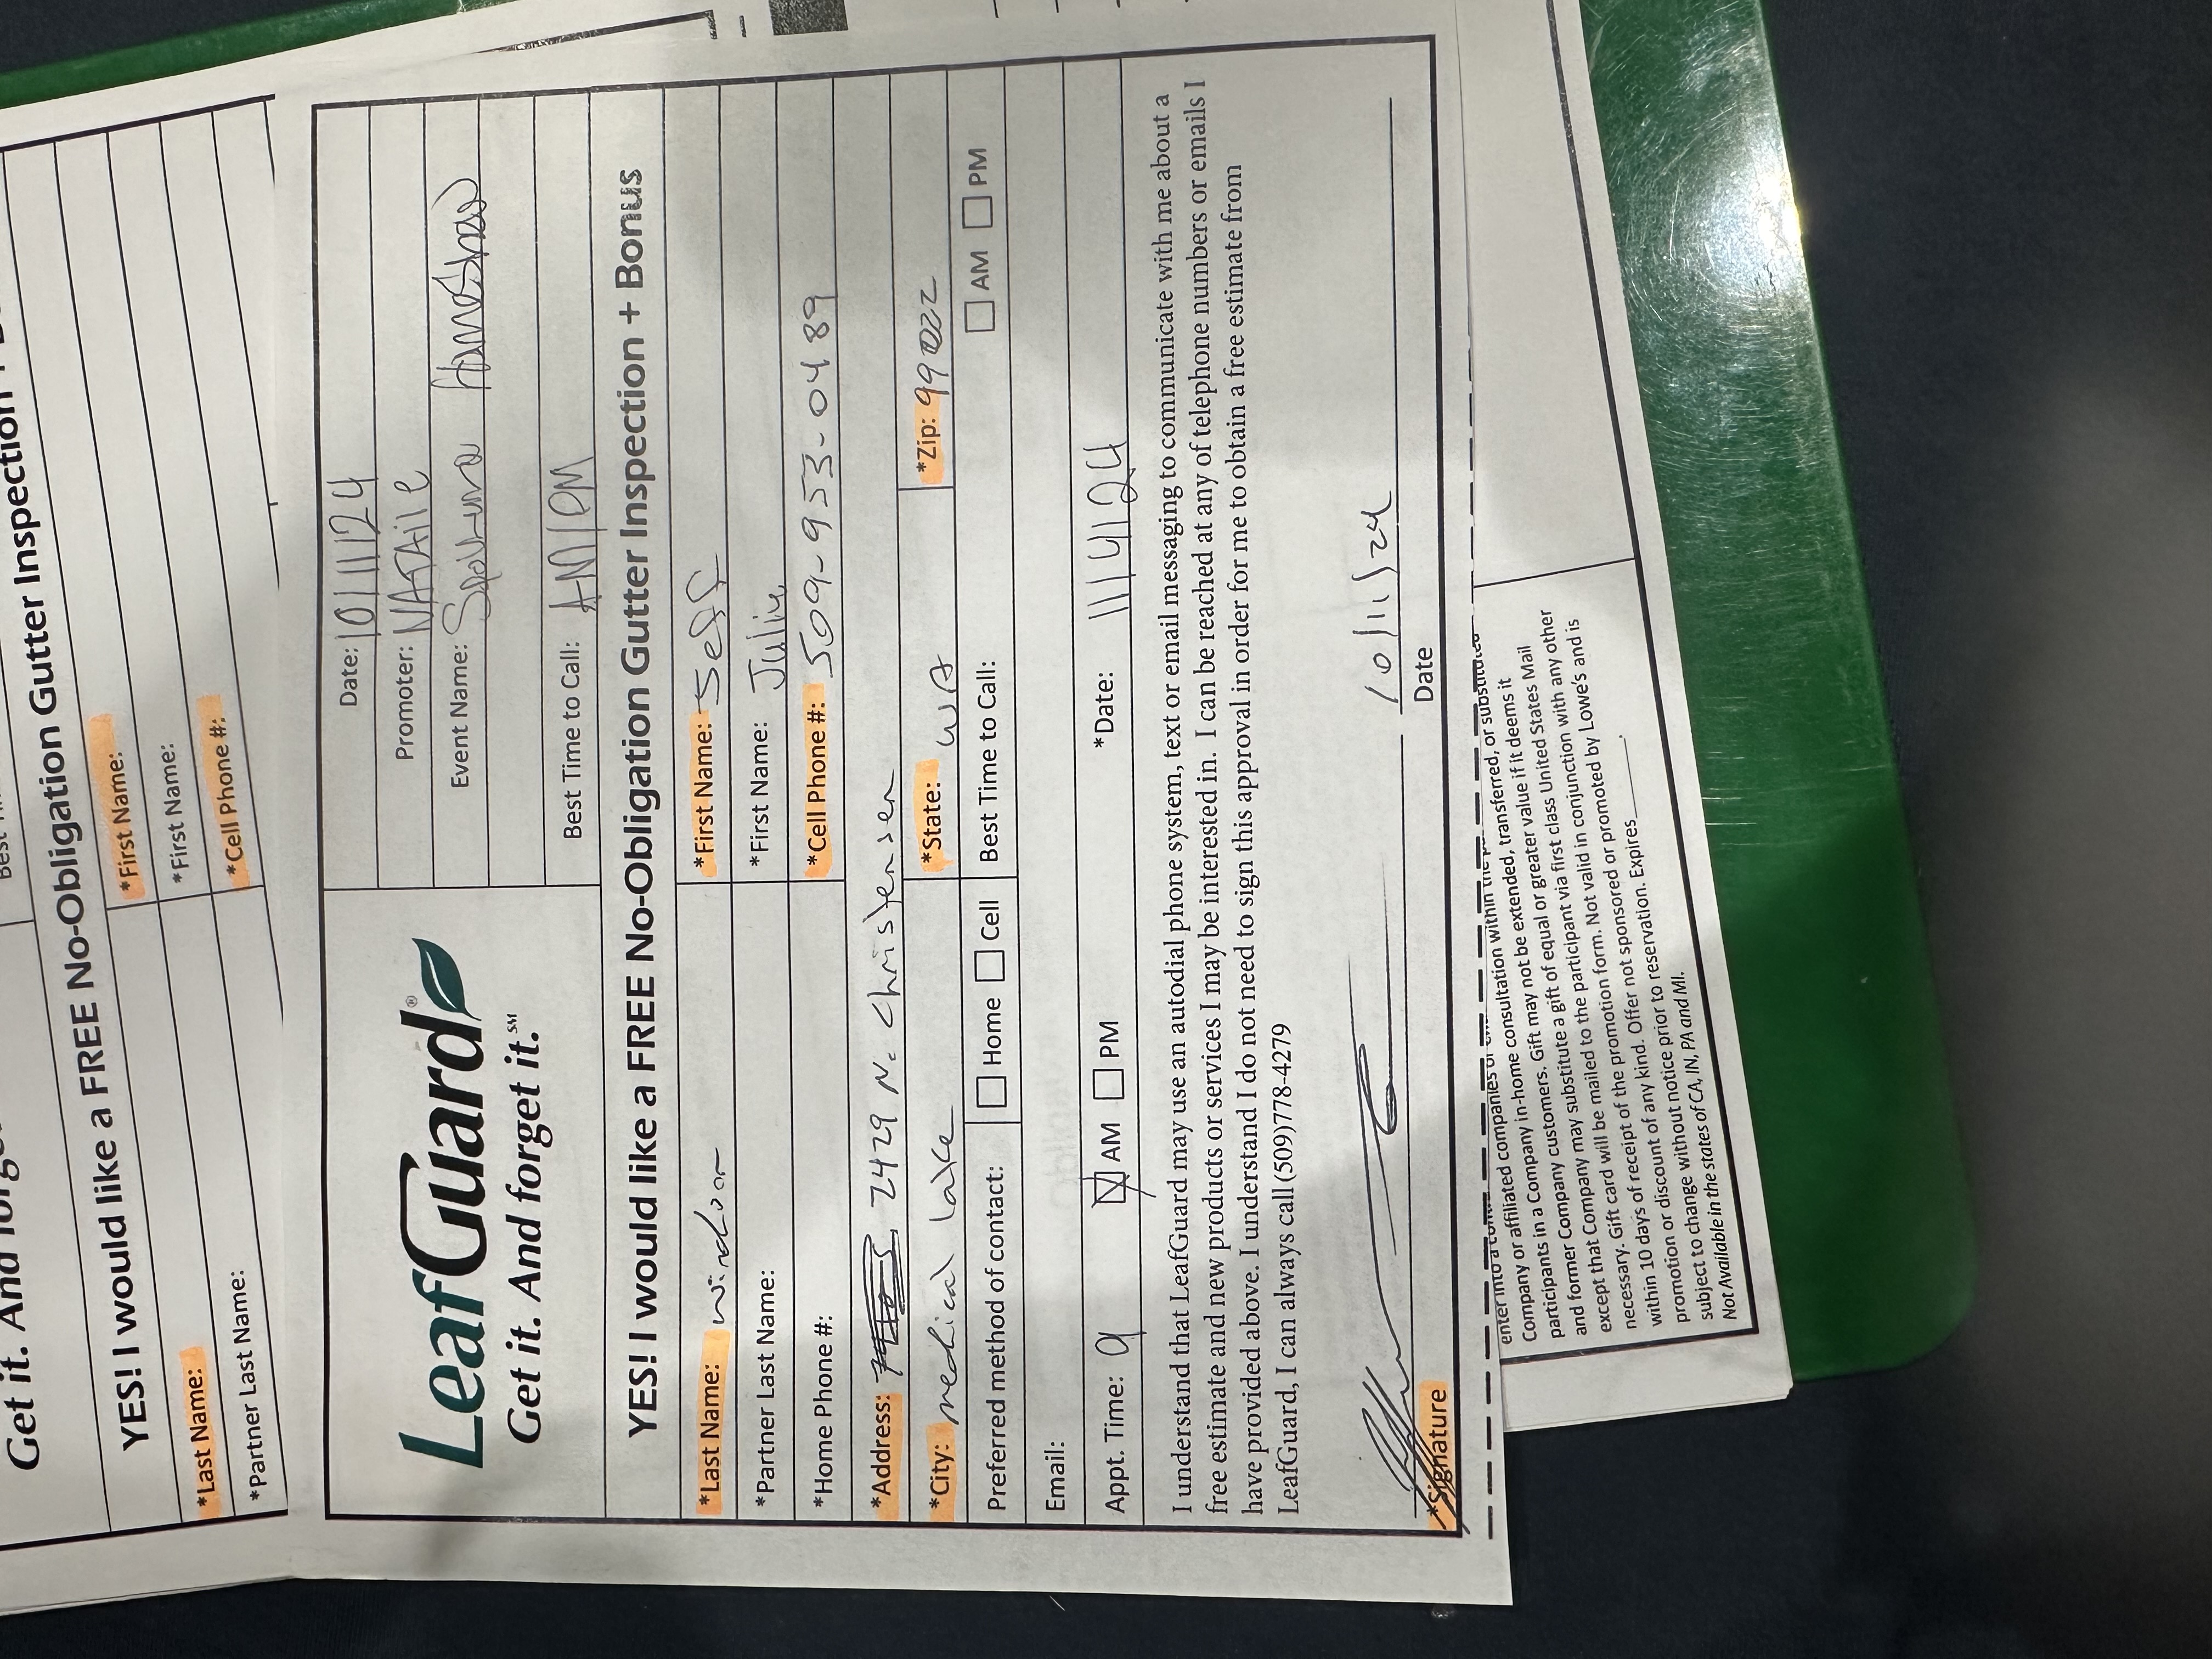 Get it. And forg
Best
YES! I would like a FREE No-Obligation Gutter Inspection +
*Last Name: *First Name:
*Partner Last Name: *First Name:
*Cell Phone #:
LeafGuard®
Get it. And forget it.℠
Date: 10/11/24
Promoter: NATAile
Event Name: Spokane HomeShow
Best Time to Call: AM/PM
YES! I would like a FREE No-Obligation Gutter Inspection + Bonus
*Last Name: *First Name: Jeff
*Partner Last Name: *First Name: Julie
*Home Phone #: *Cell Phone #: 509-953-0489
*Address: 2429 N. Christensen
*City: medical lake *State: WA *Zip: 99022
Preferred method of contact: Home Cell Best Time to Call: AM PM
Email:
Appt. Time: 9 AM PM *Date: 11/4/24
I understand that LeafGuard may use an autodial phone system, text or email messaging to communicate with me about a
free estimate and new products or services I may be interested in. I can be reached at any of telephone numbers or emails I
have provided above. I understand I do not need to sign this approval in order for me to obtain a free estimate from
LeafGuard, I can always call (509)778-4279
10/11/24
*Signature Date
enter into a
Company or affiliated companies or
participants in a Company in-home consultation within the
and former Company customers. Gift may not be extended, transferred, or substituted
except that Company may substitute a gift of equal or greater value if it deems it
necessary. Gift card will be mailed to the participant via first class United States Mail
within 10 days of receipt of the promotion form. Not valid in conjunction with any other
promotion or discount of any kind. Offer not sponsored or promoted by Lowe's and is
subject to change without notice prior to reservation. Expires________.
Not Available in the states of CA, IN, PA and MI.